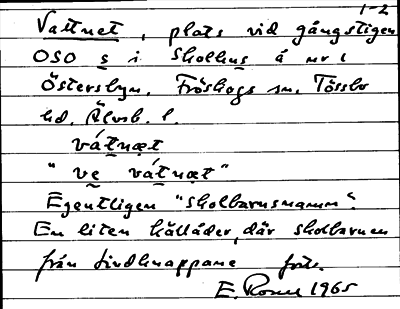 1-2
Vattnet, plats vid gångstigen
OSO s i Skolhus å nr 1
Östersbyn. Fröskogs sn. Tössbo
hd. Älvsb. l.
vátnæt
"ve vátnæt"
Egentligen "skolbarnsnamn".
En liten källåder, där skolbarnen
från Lindknappane
E. 1965